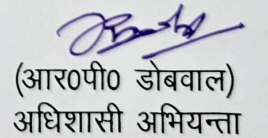 (आर0पी0 डोबवाल)
अधिशासी अभियन्ता